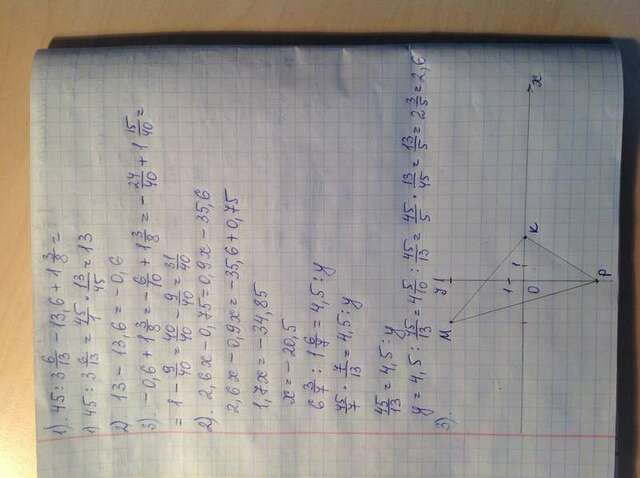 1). 45 : 3 6/13 - 13,6 + 1 3/8 =
1) 45 : 3 6/13 = 45/1 · 13/45 = 13
2) 13 - 13,6 = -0,6
3). -0,6 + 1 3/8 = -6/10 + 1 3/8 = -24/40 + 1 15/40 =
= 1 - 9/40 = 40/40 - 9/40 = 31/40
2). 2,6x - 0,75 = 0,9x - 35,6
2,6x - 0,9x = -35,6 + 0,75
1,7x = -34,85
x = -20,5
6 3/7 : 1 6/7 = 4,5 : y
45/7 · 7/13 = 4,5 : y
45/13 = 4,5 : y
y = 4,5 : 45/13 = 4 5/10 : 45/13 = 45/5 · 13/45 = 13/5 = 2 3/5 = 2,6
3).
y
M
1
0
1
K
x
P